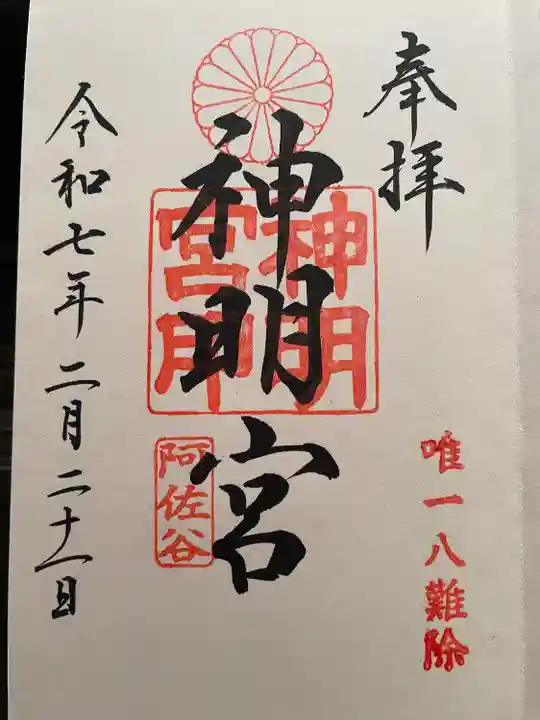 奉拝
唯一八難除
神明宮
神明
宮印
阿佐谷
令和七年二月二十一日